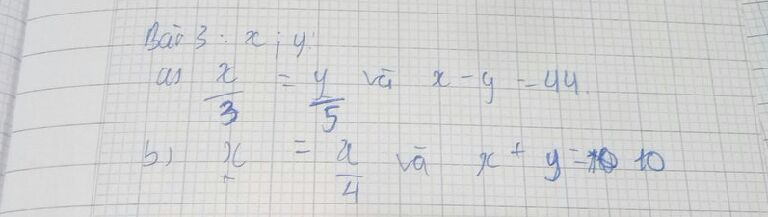 Bài 3: x; y:
a) x/3 = y/5 và x - y = 44.
b) x = x/4 và x + y = 10